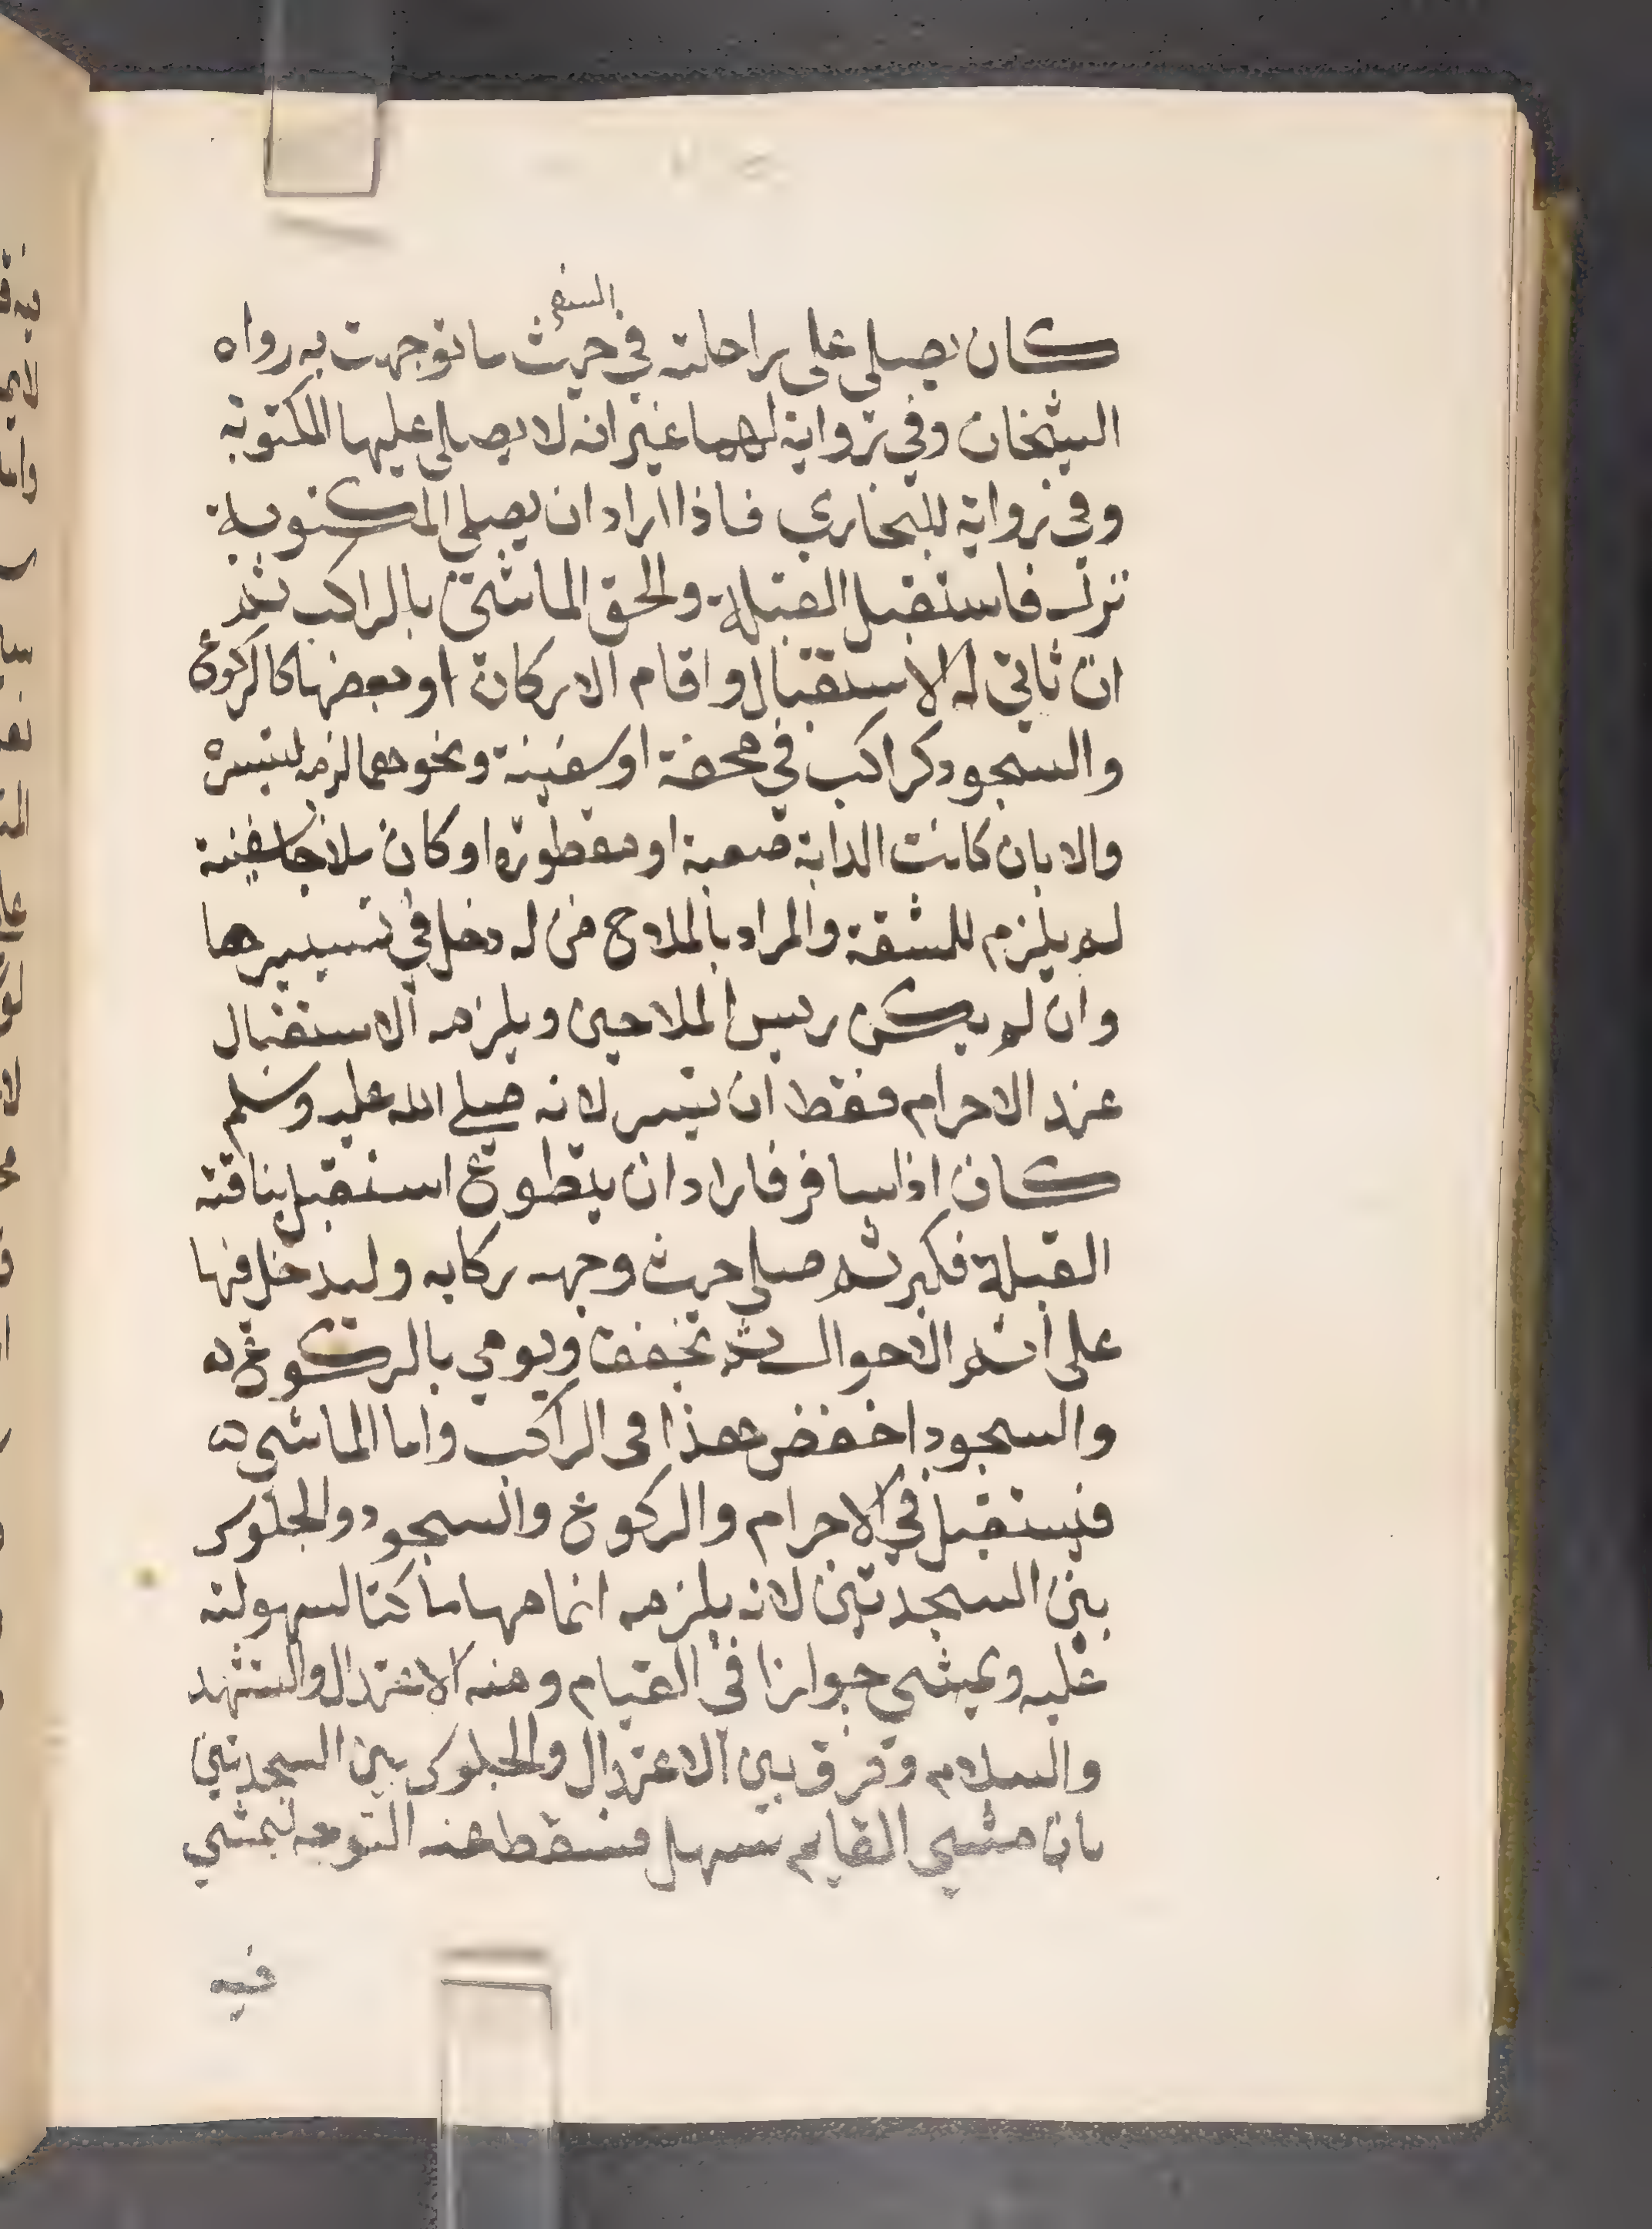 السفر
كان يصلي على راحلته في حيث ما توجهت به رواه
الشيخان وفي رواية لهما غير انه لا يصلي عليها المكتوبة
وفي رواية للبخاري فاذا اراد ان يصلي المكتوبة
نزل فاستقبل القبلة والحق الماشي بالراكب ثم
ان تاتي له الاستقبال واقام الاركان او بعضها كالركوع
والسجود كراكب في محفة او سفينة ونحوهما لزمه لتيسره
والا بان كانت الدابة صعبة او مقطورة او كان ملاحا سفينة
لم يلزم للمشقة والمراد بالملاح من له دخل في تسييرها
وان لم يكن رييس الملاحين ويلزمه الاستقبال
عند الاحرام فقط ان تيسر لانه صلى الله عليه وسلم
كان اذا سافر فاراد ان يتطوع استقبل بناقته
القبلة فكبر ثم صلى حيث وجهه ركابه وليدخل فيها
على اتم الاحوال ثم تخفف ويومي بالركوع
والسجود اخفض هذا في الراكب واما الماشي
فيستقبل في الاحرام والركوع والسجود والجلوس
بين السجدتين لانه يلزمه اتمامها ماكثا لسهولته
عليه ويمشي جوازا في القيام ومنه الاعتدال والتشهد
والسلام وفرق بين الاعتدال والجلوس بين السجدتين
بان مشي القايم سهل فسقط عنه التوجه ليمشي
فيه